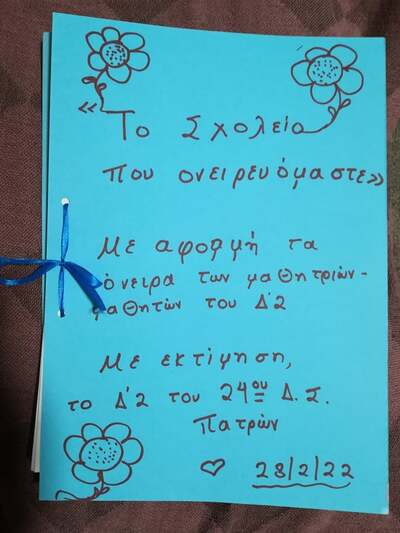 «Το Σχολείο
που ονειρευόμαστε»
Με αφορμή τα
όνειρα των μαθητριών-
μαθητών του Δ'2
Με εκτίμηση,
το Δ'2 του 24ου Δ.Σ.
Πατρών
♡ 28/2/22